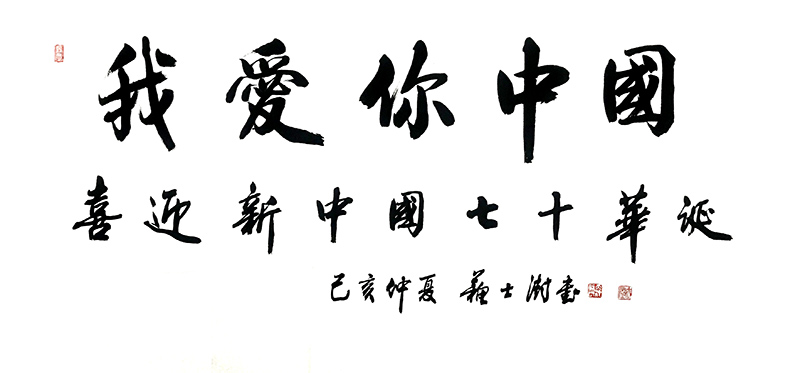 我愛你中國
喜迎新中國七十華誕
己亥仲夏 蘇士澍書